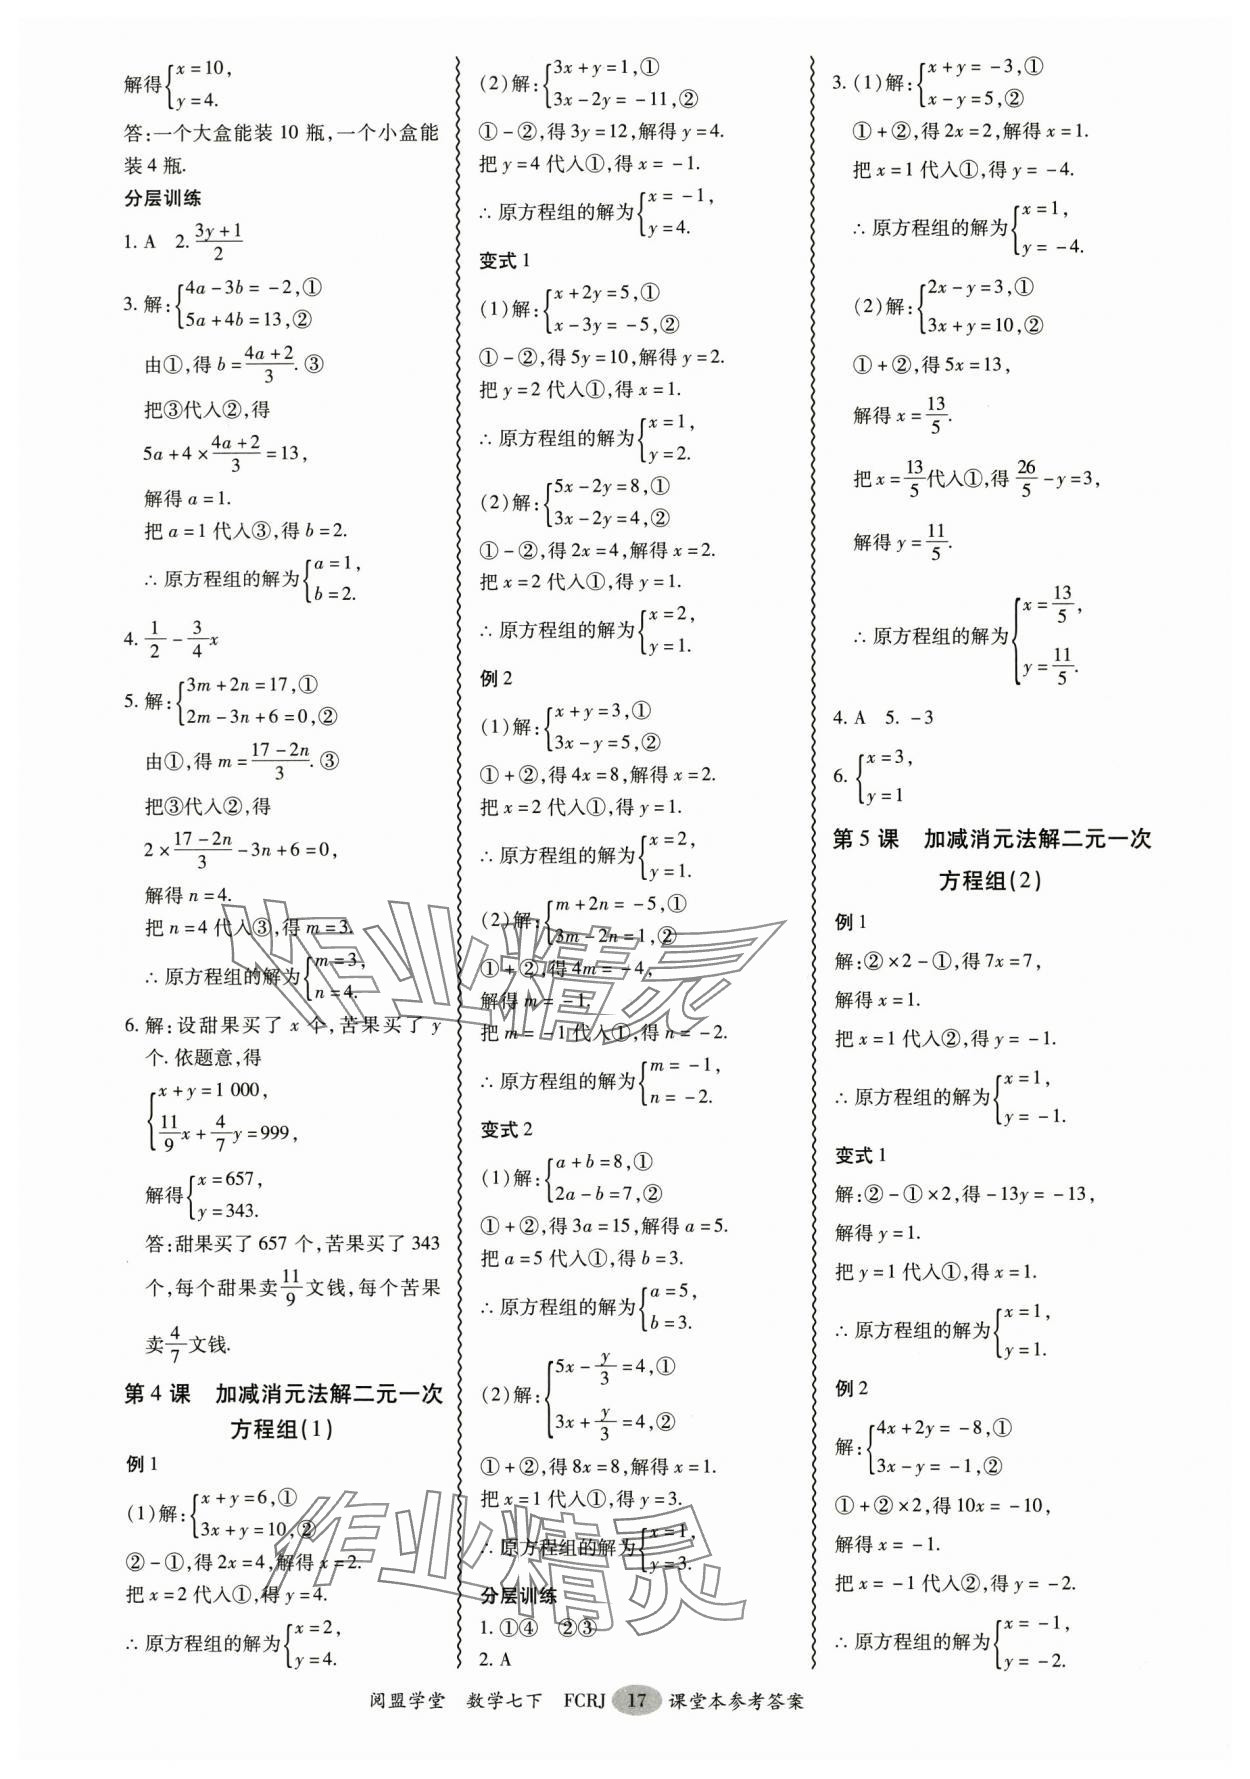 解得{x=10,
y=4.
答:一个大盒能装 10 瓶,一个小盒能
装 4 瓶.
分层训练
1. A 2. (3y+1)/2
3. 解:{4a-3b=-2,①
5a+4b=13,②
由①,得 b=(4a+2)/3. ③
把③代入②,得
5a+4×(4a+2)/3=13,
解得 a=1.
把 a=1 代入③,得 b=2.
∴ 原方程组的解为{a=1,
b=2.
4. 1/2-3/4x
5. 解:{3m+2n=17,①
2m-3n+6=0,②
由①,得 m=(17-2n)/3. ③
把③代入②,得
2×(17-2n)/3-3n+6=0,
解得 n=4.
把 n=4 代入③,得 m=3.
∴ 原方程组的解为{m=3,
n=4.
6. 解:设甜果买了 x 个,苦果买了 y
个. 依题意,得
{x+y=1 000,
11/9x+4/7y=999,
解得{x=657,
y=343.
答:甜果买了 657 个,苦果买了 343
个,每个甜果卖11/9文钱,每个苦果
卖4/7文钱.
第 4 课 加减消元法解二元一次
方程组(1)
例 1
(1)解:{x+y=6,①
3x+y=10,②
②-①,得 2x=4,解得 x=2.
把 x=2 代入①,得 y=4.
∴ 原方程组的解为{x=2,
y=4.
(2)解:{3x+y=1,①
3x-2y=-11,②
①-②,得 3y=12,解得 y=4.
把 y=4 代入①,得 x=-1.
∴ 原方程组的解为{x=-1,
y=4.
变式 1
(1)解:{x+2y=5,①
x-3y=-5,②
①-②,得 5y=10,解得 y=2.
把 y=2 代入①,得 x=1.
∴ 原方程组的解为{x=1,
y=2.
(2)解:{5x-2y=8,①
3x-2y=4,②
①-②,得 2x=4,解得 x=2.
把 x=2 代入①,得 y=1.
∴ 原方程组的解为{x=2,
y=1.
例 2
(1)解:{x+y=3,①
3x-y=5,②
①+②,得 4x=8,解得 x=2.
把 x=2 代入①,得 y=1.
∴ 原方程组的解为{x=2,
y=1.
(2)解:{m+2n=-5,①
3m-2n=1,②
①+②,得 4m=-4,
解得 m=-1.
把 m=-1 代入①,得 n=-2.
∴ 原方程组的解为{m=-1,
n=-2.
变式 2
(1)解:{a+b=8,①
2a-b=7,②
①+②,得 3a=15,解得 a=5.
把 a=5 代入①,得 b=3.
∴ 原方程组的解为{a=5,
b=3.
(2)解:{5x-y/3=4,①
3x+y/3=4,②
①+②,得 8x=8,解得 x=1.
把 x=1 代入①,得 y=3.
∴ 原方程组的解为{x=1,
y=3.
分层训练
1. ①④ ②③
2. A
3. (1)解:{x+y=-3,①
x-y=5,②
①+②,得 2x=2,解得 x=1.
把 x=1 代入①,得 y=-4.
∴ 原方程组的解为{x=1,
y=-4.
(2)解:{2x-y=3,①
3x+y=10,②
①+②,得 5x=13,
解得 x=13/5.
把 x=13/5代入①,得 26/5-y=3,
解得 y=11/5.
∴ 原方程组的解为{x=13/5,
y=11/5.
4. A 5. -3
6. {x=3,
y=1
第 5 课 加减消元法解二元一次
方程组(2)
例 1
解:②×2-①,得 7x=7,
解得 x=1.
把 x=1 代入②,得 y=-1.
∴ 原方程组的解为{x=1,
y=-1.
变式 1
解:②-①×2,得-13y=-13,
解得 y=1.
把 y=1 代入①,得 x=1.
∴ 原方程组的解为{x=1,
y=1.
例 2
解:{4x+2y=-8,①
3x-y=-1,②
①+②×2,得 10x=-10,
解得 x=-1.
把 x=-1 代入②,得 y=-2.
∴ 原方程组的解为{x=-1,
y=-2.
作业精灵
作业精灵
阅盟学堂 数学七下 FCRJ 17 课堂本参考答案